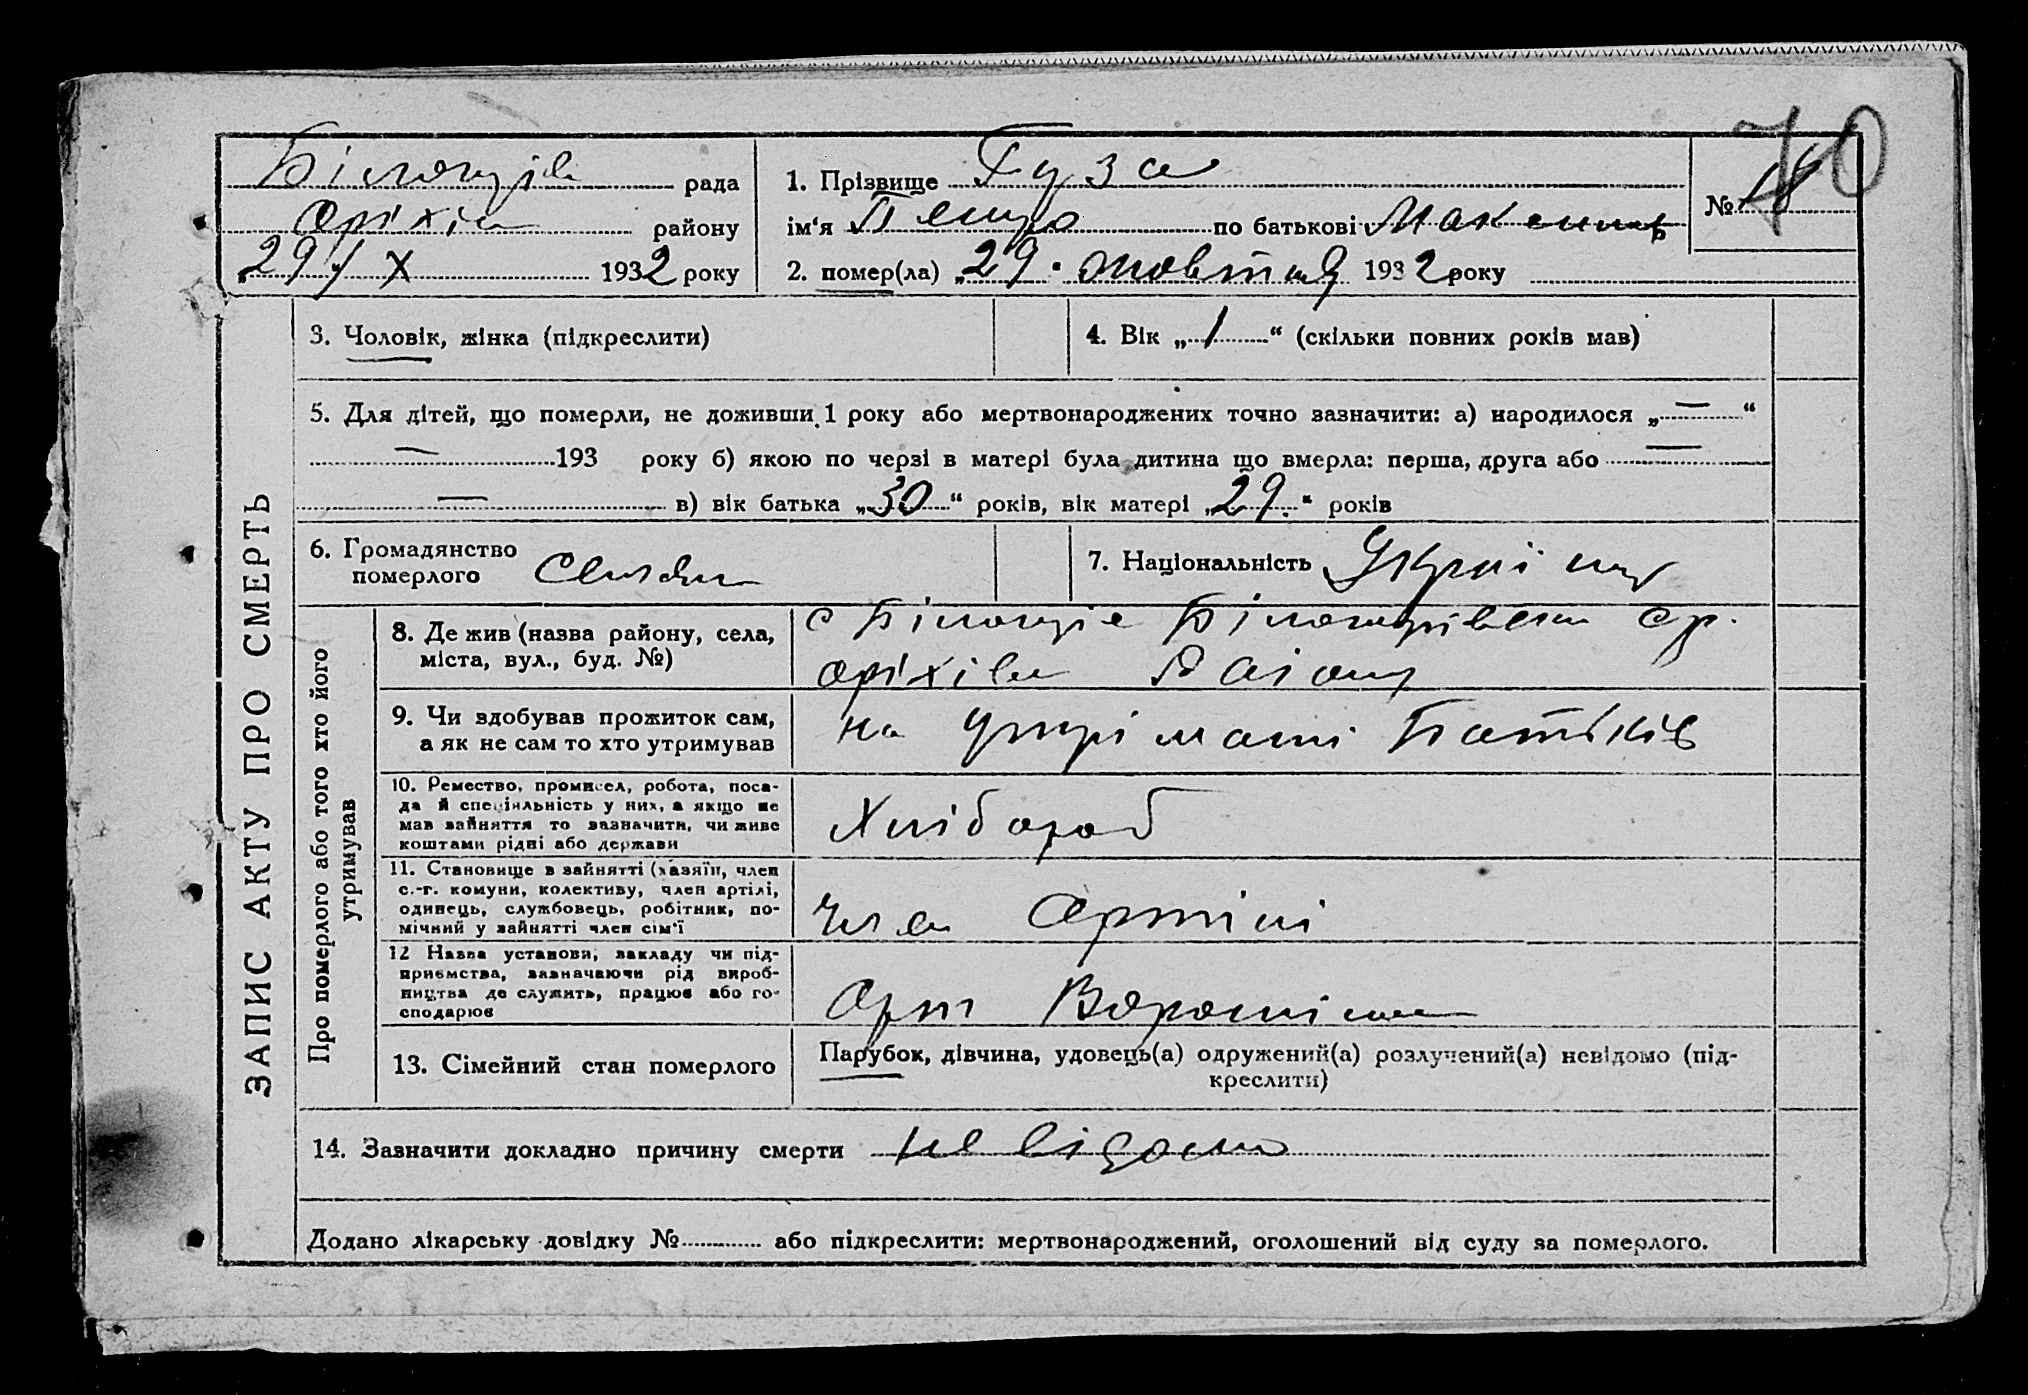 70
Білогрів рада
Оріхів району
29/X 1932 року
1. Прізвище Гуза
ім'я Петро по батькові
№ 18
2. помер(ла) „29" жовтня 1932 року
ЗАПИС АКТУ ПРО СМЕРТЬ
3. Чоловік, жінка (підкреслити)
4. Вік „1" (скільки повних років мав)
5. Для дітей, що померли, не доживши 1 року або мертвонароджених точно зазначити: а) народилося „—"
— 193 року б) якою по черзі в матері була дитина що вмерла: перша, друга або —
— в) вік батька „30" років, вік матері „29" років
6. Громадянство
померлого
7. Національність
Про померлого або того хто його
утримував
8. Де жив (назва району, села,
міста, вул., буд. №)
с
Оріхів Району
9. Чи здобував прожиток сам,
а як не сам то хто утримував
на утрімані Батьків
10. Ремество, промисел, робота, поса-
да й спеціяльність у них, а якщо не
мав зайняття то зазначити, чи живе
коштами рідні або держави
Хлібороб
11. Становище в зайнятті (хазяїн, член
с.-г. комуни, колективу, член артілі,
одинець, службовець, робітник, по-
мічний у зайнятті член сім'ї
Член Артілі
12 Назва установи, закладу чи під-
приємства, зазначаючи рід вироб-
ництва де служить, працює або го-
сподарює
Арт Ворошілова
13. Сімейний стан померлого
Парубок, дівчина, удовець(а) одружений(а) розлучений(а) невідомо (під-
креслити)
14. Зазначити докладно причину смерти не відомо
Додано лікарську довідку № або підкреслити: мертвонароджений, оголошений від суду за померлого.